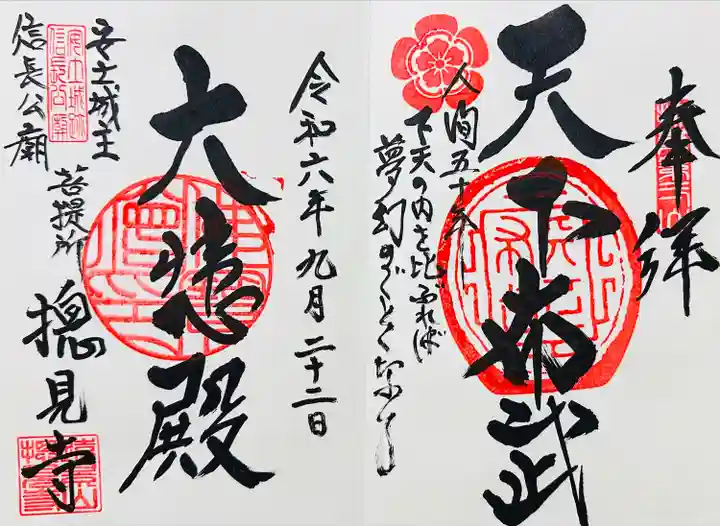 奉拝
天下布武
人間五十年
下天の内を比ぶれば
夢幻のごとくなり
令和六年九月二十二日
大徳殿
安土城主
信長公廟
菩提所
摠見寺
安土城跡
信長公廟